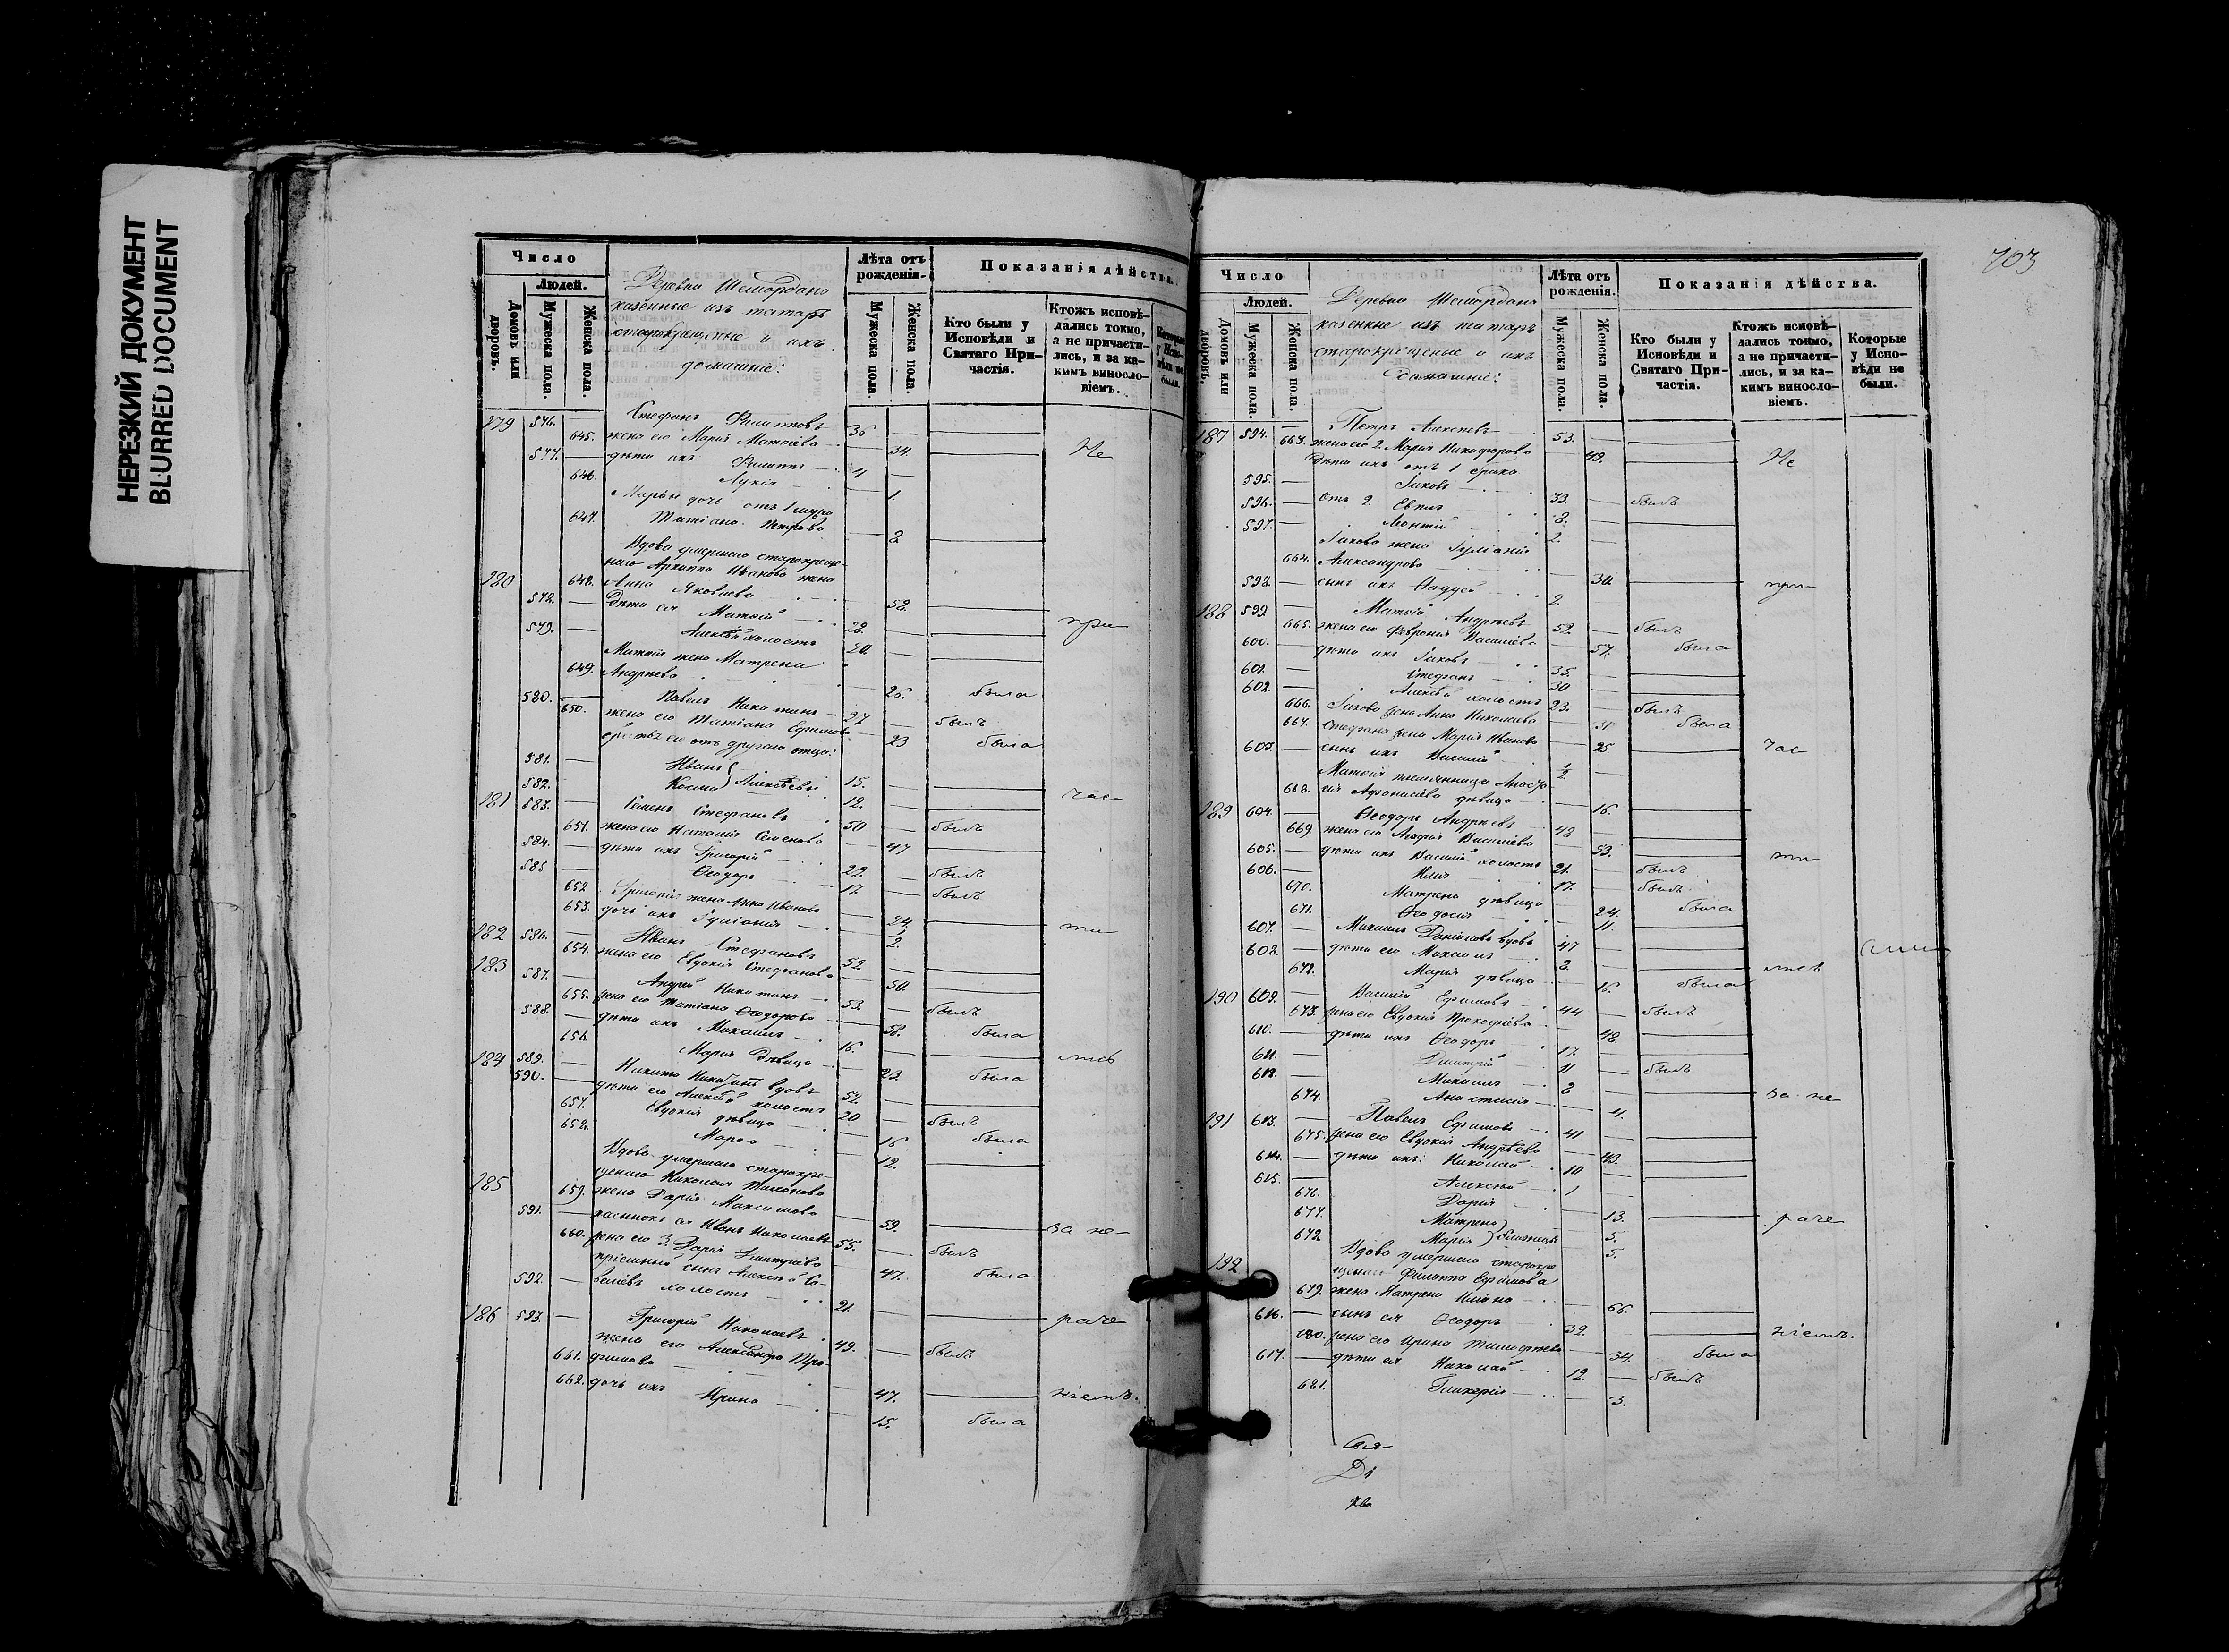 НЕРЕЗКИЙ ДОКУМЕНТ
BLURRED DOCUMENT
Число
Людей.
Домовъ или дворовъ.
Мужеска пола.
Женска пола.
Деревни Шемордана
казенные изъ татаръ
старокрещеные и ихъ
домашніе:
Лѣта отъ рожденія.
Мужеска пола.
Женска пола.
Показанія дѣйства.
Кто были у Исповѣди и Святаго Причастія.
Ктожъ исповѣдались токмо, а не причастились, и за какимъ винословіемъ.
179 576. Стефанъ Филиповъ 36
645. жена его Марія Матвѣева 34. Не
577. дѣти ихъ: Филиппъ 4
646. Лукія 1.
Марьи дочь отъ 1 мужа
647. Татіана Петрова 8
Вдова умершаго старокреще-
наго Архиппа Иванова жена
180 648. Анна Яковлева 58.
578. Дѣти ея Матвій 28. при
579. Алексѣй холостъ 20.
Матвія жена Матрена
649. Андреева 26. была
580. Павелъ Никитинъ 27 былъ
650. жена его Татіана Ефимова 23 была
братья его отъ другаго отца:
581. Иванъ 15.
582. Косма } Алексѣевы 12. час
181 583. Семенъ Стефановъ 50 былъ
651. жена его Наталія Семенова 47
584. дѣти ихъ Григорій 22. былъ
585 Ѳеодоръ 17. былъ
652 Григорія жена Анна Иванова 24. ти
653. дочь ихъ Іуліанія 1/2.
182 586. Иванъ Стефановъ 52.
654. жена его Евдокія Стефанова 50.
183 587. Андрей Никитинъ 53. былъ
655. жена его Татіана Ѳеодорова 56. была
588. дѣти ихъ Михаилъ 16.
656. Марія дѣвица 23. была
184 589. Никита Никитинъ вдовъ 52.
590. дѣти его Алексѣй холостъ 20 былъ
657. Евдокія дѣвица 16 была
658. Марѳа 12.
Вдова умершаго старокре-
щенаго Николая Тихонова
185 659. жена Дарія Максимова 59. за не-
591. пасынокъ ея Иванъ Николаевъ 55. былъ
660. жена его 3. Дарія Дмитріева 47. была
пріемный сынъ Алексѣй Са-
592. велиевъ холостъ 21. раче
186 593. Григорій Николаевъ 49. былъ
жена его Александра Тро-
661. фимова 47. ніемъ.
662. дочь ихъ Ирина 15. была
703
Число
Людей.
Домовъ или дворовъ.
Мужеска пола.
Женска пола.
Деревни Шемордана
казенные изъ татаръ
старокрещеные и ихъ
домашніе:
Лѣта отъ рожденія.
Мужеска пола.
Женска пола.
Показанія дѣйства.
Кто были у Исповѣди и Святаго Причастія.
Ктожъ исповѣдались токмо, а не причастились, и за какимъ винословіемъ.
Которые у Исповѣди не были.
187 594. Петръ Алексѣевъ 53.
663. жена его 2. Марія Никифорова 49. Не
Дѣти ихъ отъ 1 брака
595. Іаковъ 33. былъ
596. отъ 2. Евпл 8.
597. Леонтій 2.
Іакова жена Іуліанія
664. Александрова 30. при
598. сынъ ихъ Ѳаддей 2.
188 599 Матвій Андреевъ 52. былъ
665. жена его Февронія Василіева 57. была
600. дѣти ихъ Іаковъ 35.
601. Стефанъ 30
602. Алексѣй холостъ 23. былъ
666. Іакова жена Анна Николаева 31 была
667. Стефана жена Марія Иванова 25. час
603. сынъ ихъ Василій 1/2
Матвія племянница
668. дѣвица 16.
189 604. Ѳеодоръ Андреевъ 48
669. жена его Агафія Василіева 53. ти
605. дѣти ихъ Василій холостъ 21. былъ
606. Илія 17. былъ
670. Матрена дѣвица 24. была
671. Ѳеодосія 11.
607. Михаилъ Даніиловъ вдовъ 47
608. дѣти его Михаилъ 8.
672. Марія дѣвица 16. была
190 609. Василій Ефимовъ 44 былъ
673. жена его Евдокія Прокопіева 48.
610. дѣти ихъ Ѳеодоръ 17. былъ
611. Дмитрій 11
612. Михаилъ 8 за не
674. Анастасія 4.
191 613. Павелъ Ефимовъ 41
675. жена его Евдокія Андрѣева 43.
614. дѣти ихъ: Николай 10
615. Алексѣй 1
676. Дарія 13. раче
677. Матрена 5.
678 Марія } близнецы 5.
Вдова умершаго старокре
щенаго Филиппа Ефимова
192 679. жена Матрена 66.
616. сынъ ея Ѳеодоръ 32. ніемъ.
680. жена его Ирина Тимофѣева 34. была
617. дѣти ея Николай 12. былъ
681. Гликерія 3.
Свя-
Ді